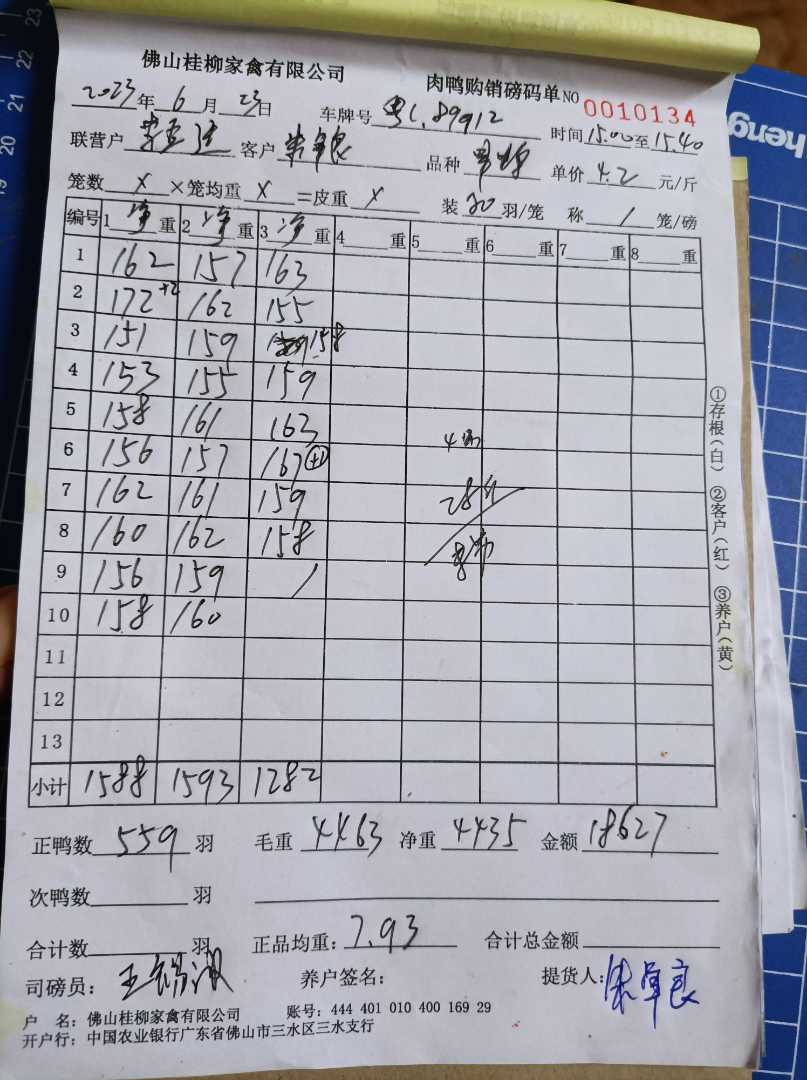 佛山桂柳家禽有限公司 肉鸭购销磅码单 NO 0010134
2023年 6 月 23日 车牌号 粤C.89912 时间 15.00 至 15.40
联营户 客户 朱卓良 品种 单价 4.2 元/斤
笼数 x ×笼均重 x =皮重 x 装 20 羽/笼 称 1 笼/磅
编号 1 净 重 2 净 重 3 净 重 4 重 5 重 6 重 7 重 8 重
1 162 157 163
2 172 +2 162 155
3 151 159 158
4 153 155 159
5 158 161 163
6 156 157 167 +1
7 162 161 159
8 160 162 158
9 156 159 /
10 158 160
11
12
13
小计 1588 1593 1282
28
①存根(白) ②客户(红) ③养户(黄)
正鸭数 559 羽 毛重 4463 净重 4435 金额 18627
次鸭数 羽
合计数 羽 正品均重: 7.93 合计总金额
司磅员: 养户签名: 提货人: 朱卓良
户 名: 佛山桂柳家禽有限公司 账号: 444 401 010 400 169 29
开户行: 中国农业银行广东省佛山市三水区三水支行
heng